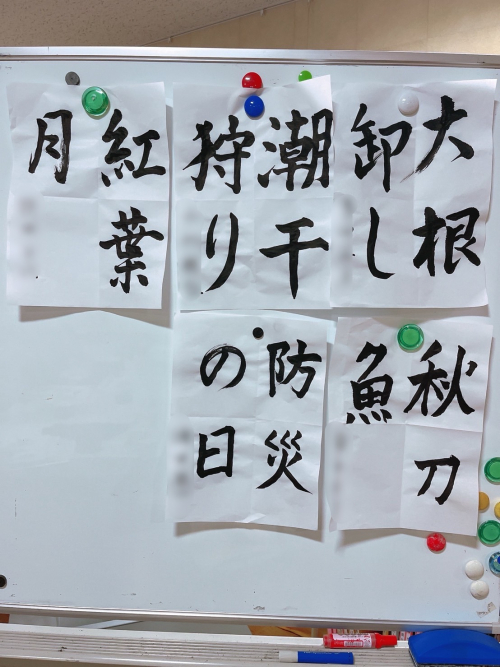 大根
卸し
潮干
狩り
紅葉
月
秋刀
魚
防災
の日